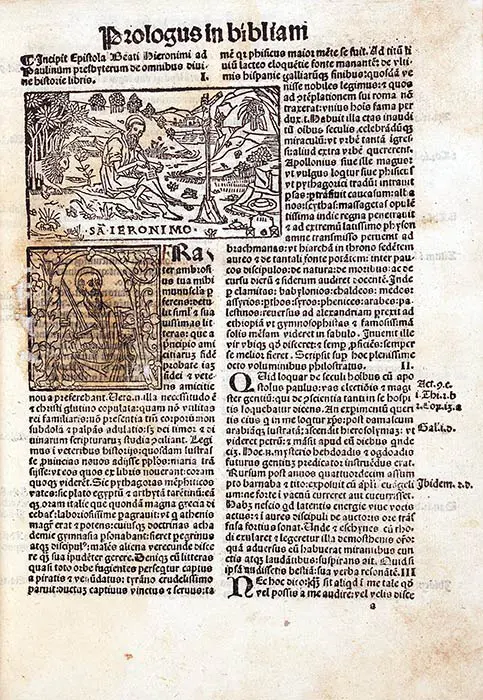 Prologus in bibliam
Incipit Epistola Beati Hieronimi ad
Paulinum presbyterum de omnibus diui
ne historie libris. I.
SA. IERONIMO.
FRater
ambrosius
tua mihi
munuscula p
ferens: detu
lit siml' & sua
uissimas lit
teras: que a
principio ami
citiarum fidẽ
probate iaʒ
fidei & vete
ris amicitie
noua preferebant. Uera.n.illa necessitudo ẽ
& christi glutino copulata: quam nõ vtilitas
rei familiaris: nõ presentia tm̃ corporũ: non
subdola & palpãs adulatio: sʒ dei timor & di
uinarum scripturarum studia cõciliant. Legi
mus i veteribus historijs: quosdam lustras
se ꝓuincias nouos adisse pplos: maria trã
sisse: vt eos quos ex libris nouerant: coram
quoqʒ viderẽt. Sic pythagoras mẽphiticos
vates: sic plato egyptũ & archytã tarẽtinũ: eã
qʒ oram italie que quondã magna grecia di
cebat': laboriosissime pagrauit: vt q athenis
magr̃ erat & potens: cuiusqʒ doctrinas acha
demie gymnasia psonabant: fieret pegrinus
atqʒ discipul': malẽs aliena verecunde disce
re q̃ sua ipudẽter gerere. Deniqʒ cũ litteras
quasi toto orbe fugientes persequit̃ captus
a piratis & venũdatus: tyrãno crudelissimo
paruit: ductus captiuus vinctus & seruus: ta
mẽ qr phisicus maior emẽte se fuit. Ad titũ li
uiũ lacteo eloquẽtie fonte manantẽ: de vlti
mis hispanie galliarũqʒ finibus: quosdã ve
nisse nobiles legimus: & quos
ad ꝯtẽplationem sui roma nõ
traxerat: vnius hois fama per
duxit. Habuit illa etas inaudi
tũ oibus seculis celebrãdũqʒ
miraculũ: vt vrbẽ tantã igres
si: aliud extra vrbẽ quererent.
Apollonius siue ille magus:
vt vulgus loqt̃: siue phisicus
vt pythagorici tradũt: intrauit
psas: ptrãsiuit caucasum: alba
nos: scythas: massagetas opulẽ
tissima indie regna penetrauit
& ad extremũ latissimo physon
amne transmisso peruenit ad
brachmanas: vt hiarchã in throno sedẽtem
aureo & de tantali fonte potãtem: inter pau
cos discipulos: de natura: de motibus: ac de
cursu dierũ & siderum audiret docentẽ. Inde
p elamitas: babylonios: chaldeos: medos:
assyrios: pthos: syros: phenices: arabes: pa
lestinos: reuersus ad alexandriam: prexit ad
ethiopiã vt gymnosophistas & famosissimã
solis mẽsam videret in sabulo. Inuenit ille
vir vbiqʒ qd disceret: & semp ꝓficiẽs: semper
se melior fieret. Scripsit sup hoc plenissime
octo voluminibus philostratus. II.
QUid loquar de seculi hoibus cũ apo
stolus paulus: vas electiõis & magi
ster gentiũ: qui de ꝯscientia tanti in se hospi
tis loquebatur dicens. An experimentũ queri
tis eius q in me loqt̃ xp̃c: post damascum
arabiãqʒ lustratã: ascendit hierosolymaʒ: vt
videret petrũ: & mãsit apud eũ diebus qnde
ciʒ. Hoc.n.mysterio hebdoadis & ogdoadis
futurus gentium predicator instruẽdus erat.
Rursum post annos quattuordecim assum
pto barnaba & tito: exposuit cũ apl'is euãgeli
um: ne forte i vacuũ curreret aut cucurrisset.
Habʒ nescio qd latentis energie viue vocis
actus: & i aures discipuli de auctoris ore trãs
fusa fortius sonat. Unde & eschynes cũ rho
di exularet & legeretur illa demosthenis orõ:
quã aduersus eũ habuerat: mirantibus cun
ctis atqʒ laudãtibus: suspirans ait. Quid si
ipsã audissetis bestiã: sua verba resonãtẽ. III
NEc hoc dico: qʒ sit aliqd i me tale qd
vel possis a me audire: vel velis disce
a
Act. 9. c.
i Thi. 2. b
2. Cor. 13. a
Gal. i. d.
Ibidem. 2. a.